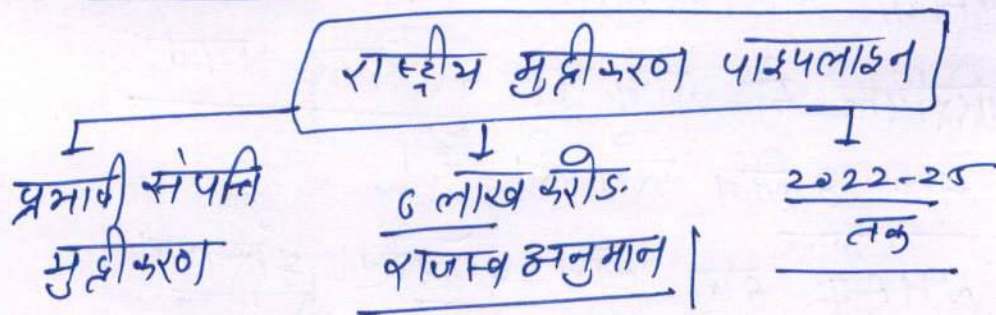 राष्ट्रीय मुद्रीकरण पाइपलाइन
प्रभावी संपत्ति
मुद्रीकरण
6 लाख करोड़
राजस्व अनुमान
2022-25
तक